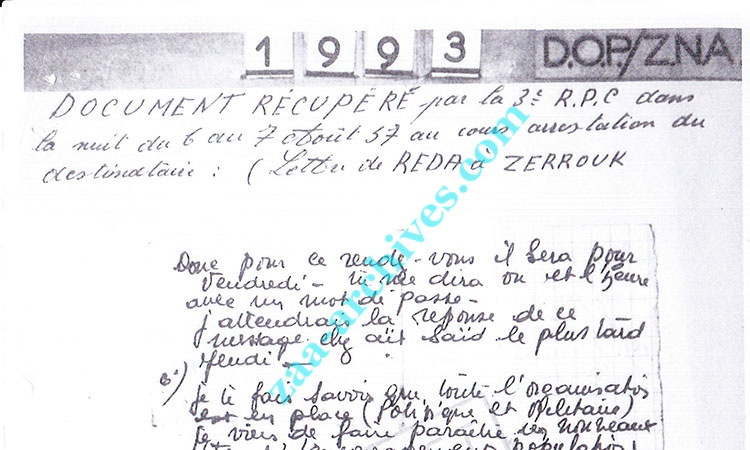 1993 D.O.P/Z.NA
DOCUMENT RÉCUPÉRÉ par la 3e R.P.C dans
la nuit du 6 au 7 Août 57 au cours arrestation du
destinataire : ( Lettre de REDA à ZERROUK
zaa-archives.com
Donc pour ce rendez-vous il sera pour
vendredi - tu me dira ou et l'heure
avec un mot de passe -
j'attendrais la réponse de ce
message chez aït Saïd le plus tard
jeudi
6°) Je te fais savoir que toute l'organisation
est en place (Politique et Militaire)
Je viens de faire paraître un nouveau
population